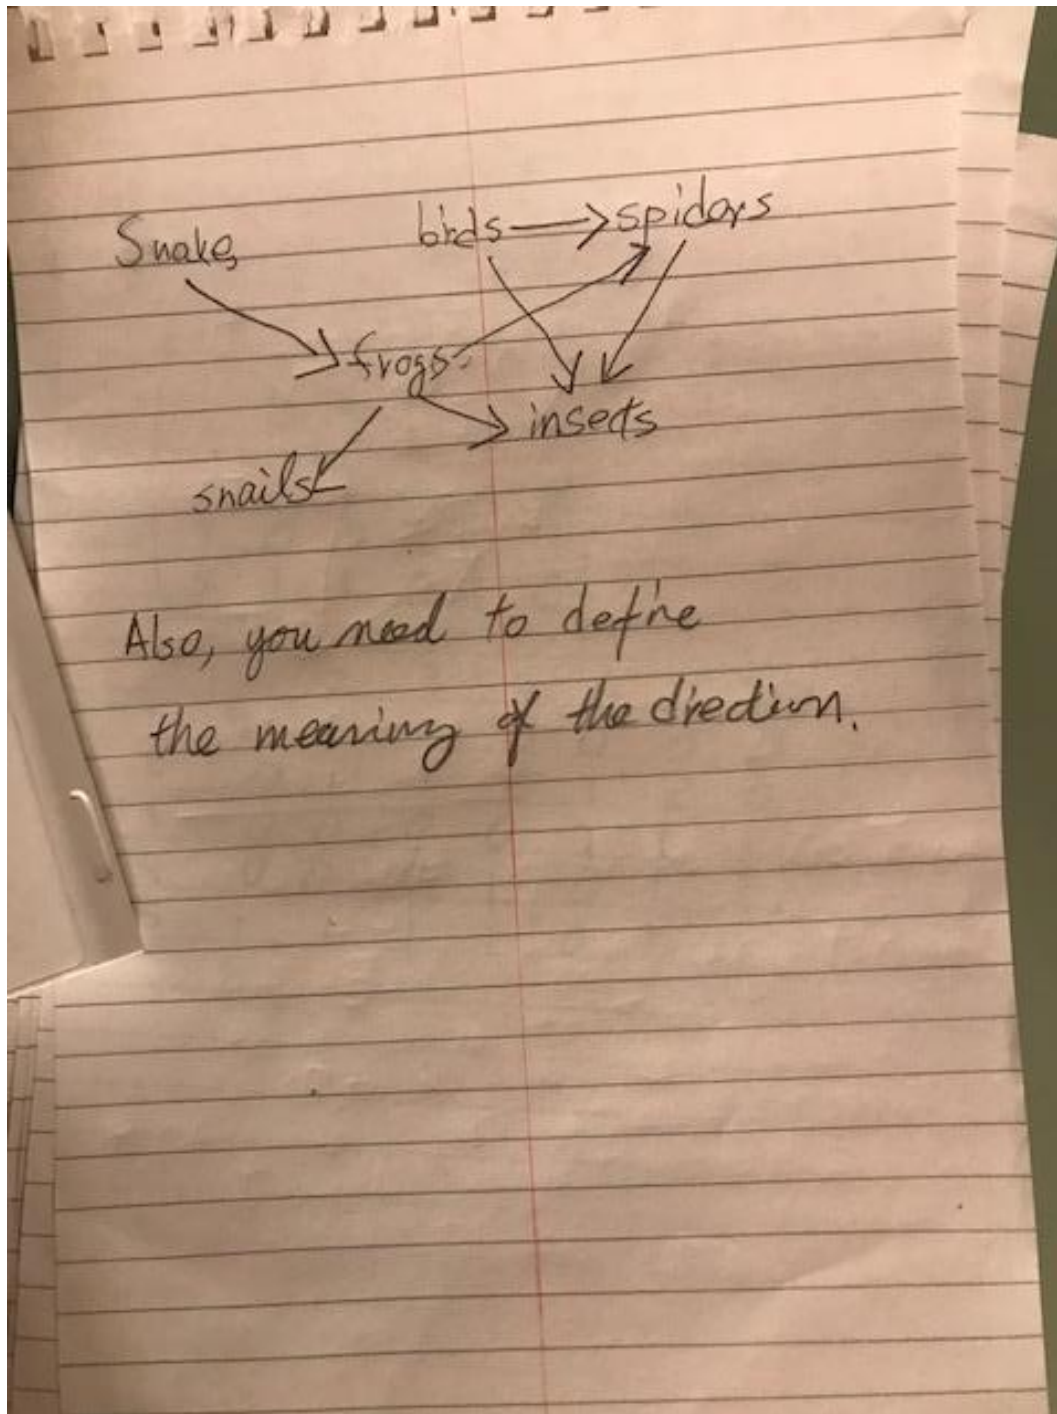 Snake
birds
spiders
frogs
insects
snails
Also, you need to define
the meaning of the direction.